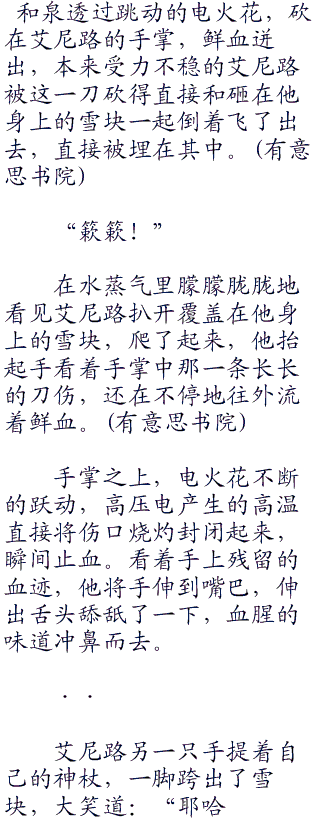 和泉透过跳动的电火花，砍
在艾尼路的手掌，鲜血迸
出，本来受力不稳的艾尼路
被这一刀砍得直接和砸在他
身上的雪块一起倒着飞了出
去，直接被埋在其中。(有意
思书院)
“簌簌！”
在水蒸气里朦朦胧胧地
看见艾尼路扒开覆盖在他身
上的雪块，爬了起来，他抬
起手看着手掌中那一条长长
的刀伤，还在不停地往外流
着鲜血。(有意思书院)
手掌之上，电火花不断
的跃动，高压电产生的高温
直接将伤口烧灼封闭起来，
瞬间止血。看着手上残留的
血迹，他将手伸到嘴巴，伸
出舌头舔舐了一下，血腥的
味道冲鼻而去。
．．
艾尼路另一只手提着自
己的神杖，一脚跨出了雪
块，大笑道：“耶哈